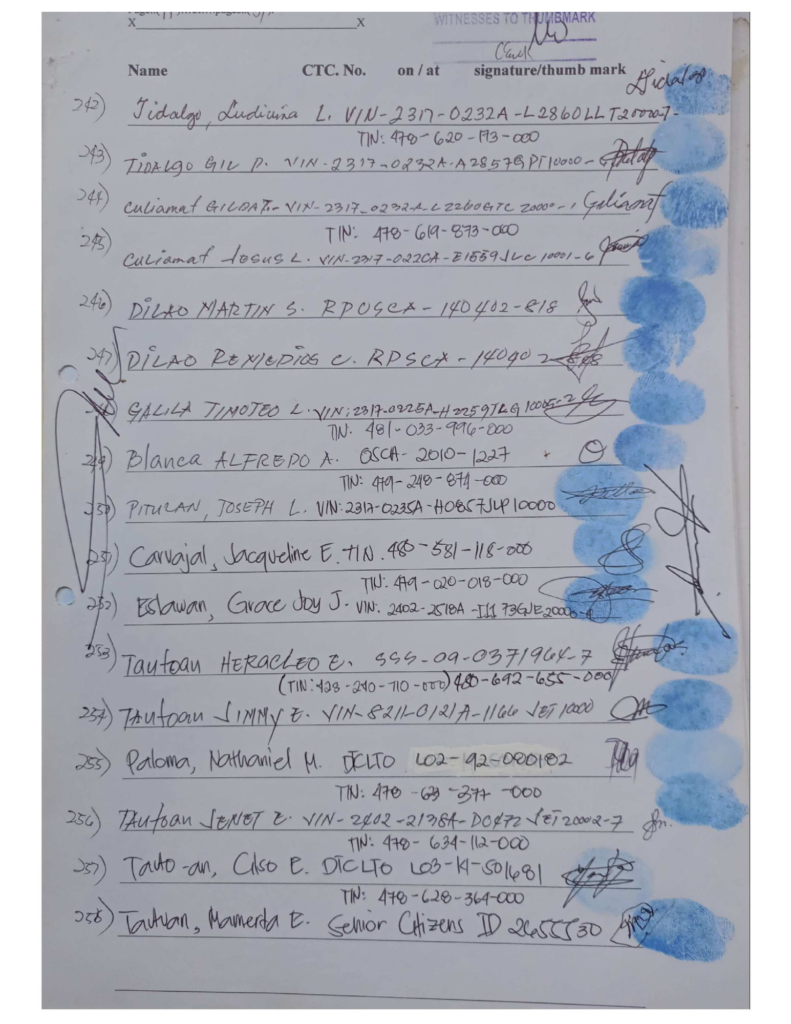 WITNESSES TO THUMBMARK
x x
Clerk
Name CTC. No. on / at signature/thumb mark
242) Tidalgo, Ludivina L. VIN-2317-0232A-L2860LLT20000-7-
TIN: 478-620-173-000
243) TIDALGO GIL P. VIN-2317-0232A-A2857GPT10000-
244) CULIAMAT GILDA T.- VIN-2317-0232-A L2260GTC 20000-1
TIN: 478-619-873-000
245) CULIAMAT Jesus L. VIN-2317-0220A-E1559JLC 10001-6
246) DILAO MARTIN S. RPOSCA-140402-818
247) DILAO REMEDIOS C. RPSCA-140902-
GALILA TIMOTEO L. VIN: 2317-0225A-H2259TLG10005-2
TIN: 481-033-996-000
249) Blanca ALFREDO A. OSCA-2010-1227
TIN: 479-248-874-000
250) PITULAN, JOSEPH L. VIN: 2317-0235A-H0857JLP10000
251) Carvajal, Jacqueline E. TIN. 480-581-118-000
TIN: 479-020-018-000
252) Eslawan, Grace Joy J. VIN: 2402-2518A-I1173GJE20006-4
253) Tautoan HERACLEO E. SSS-09-0371964-7
(TIN: 428-240-710-000) 480-692-655-000
254) TAutoan JIMMY E. VIN-8211-0121A-1166 JET10000
255) Paloma, Nathaniel M. DICLTO L02-92-080182
TIN: 478-631-377-000
256) TAutoan JENET E. VIN-2402-2138A-D0472 JET20002-7
TIN: 478-634-112-000
257) Tauto-an, Celso E. DICLTO L03-K1-501681
TIN: 478-628-364-000
258) Tautuan, Mamerda E. Senior Citizens ID 2655530